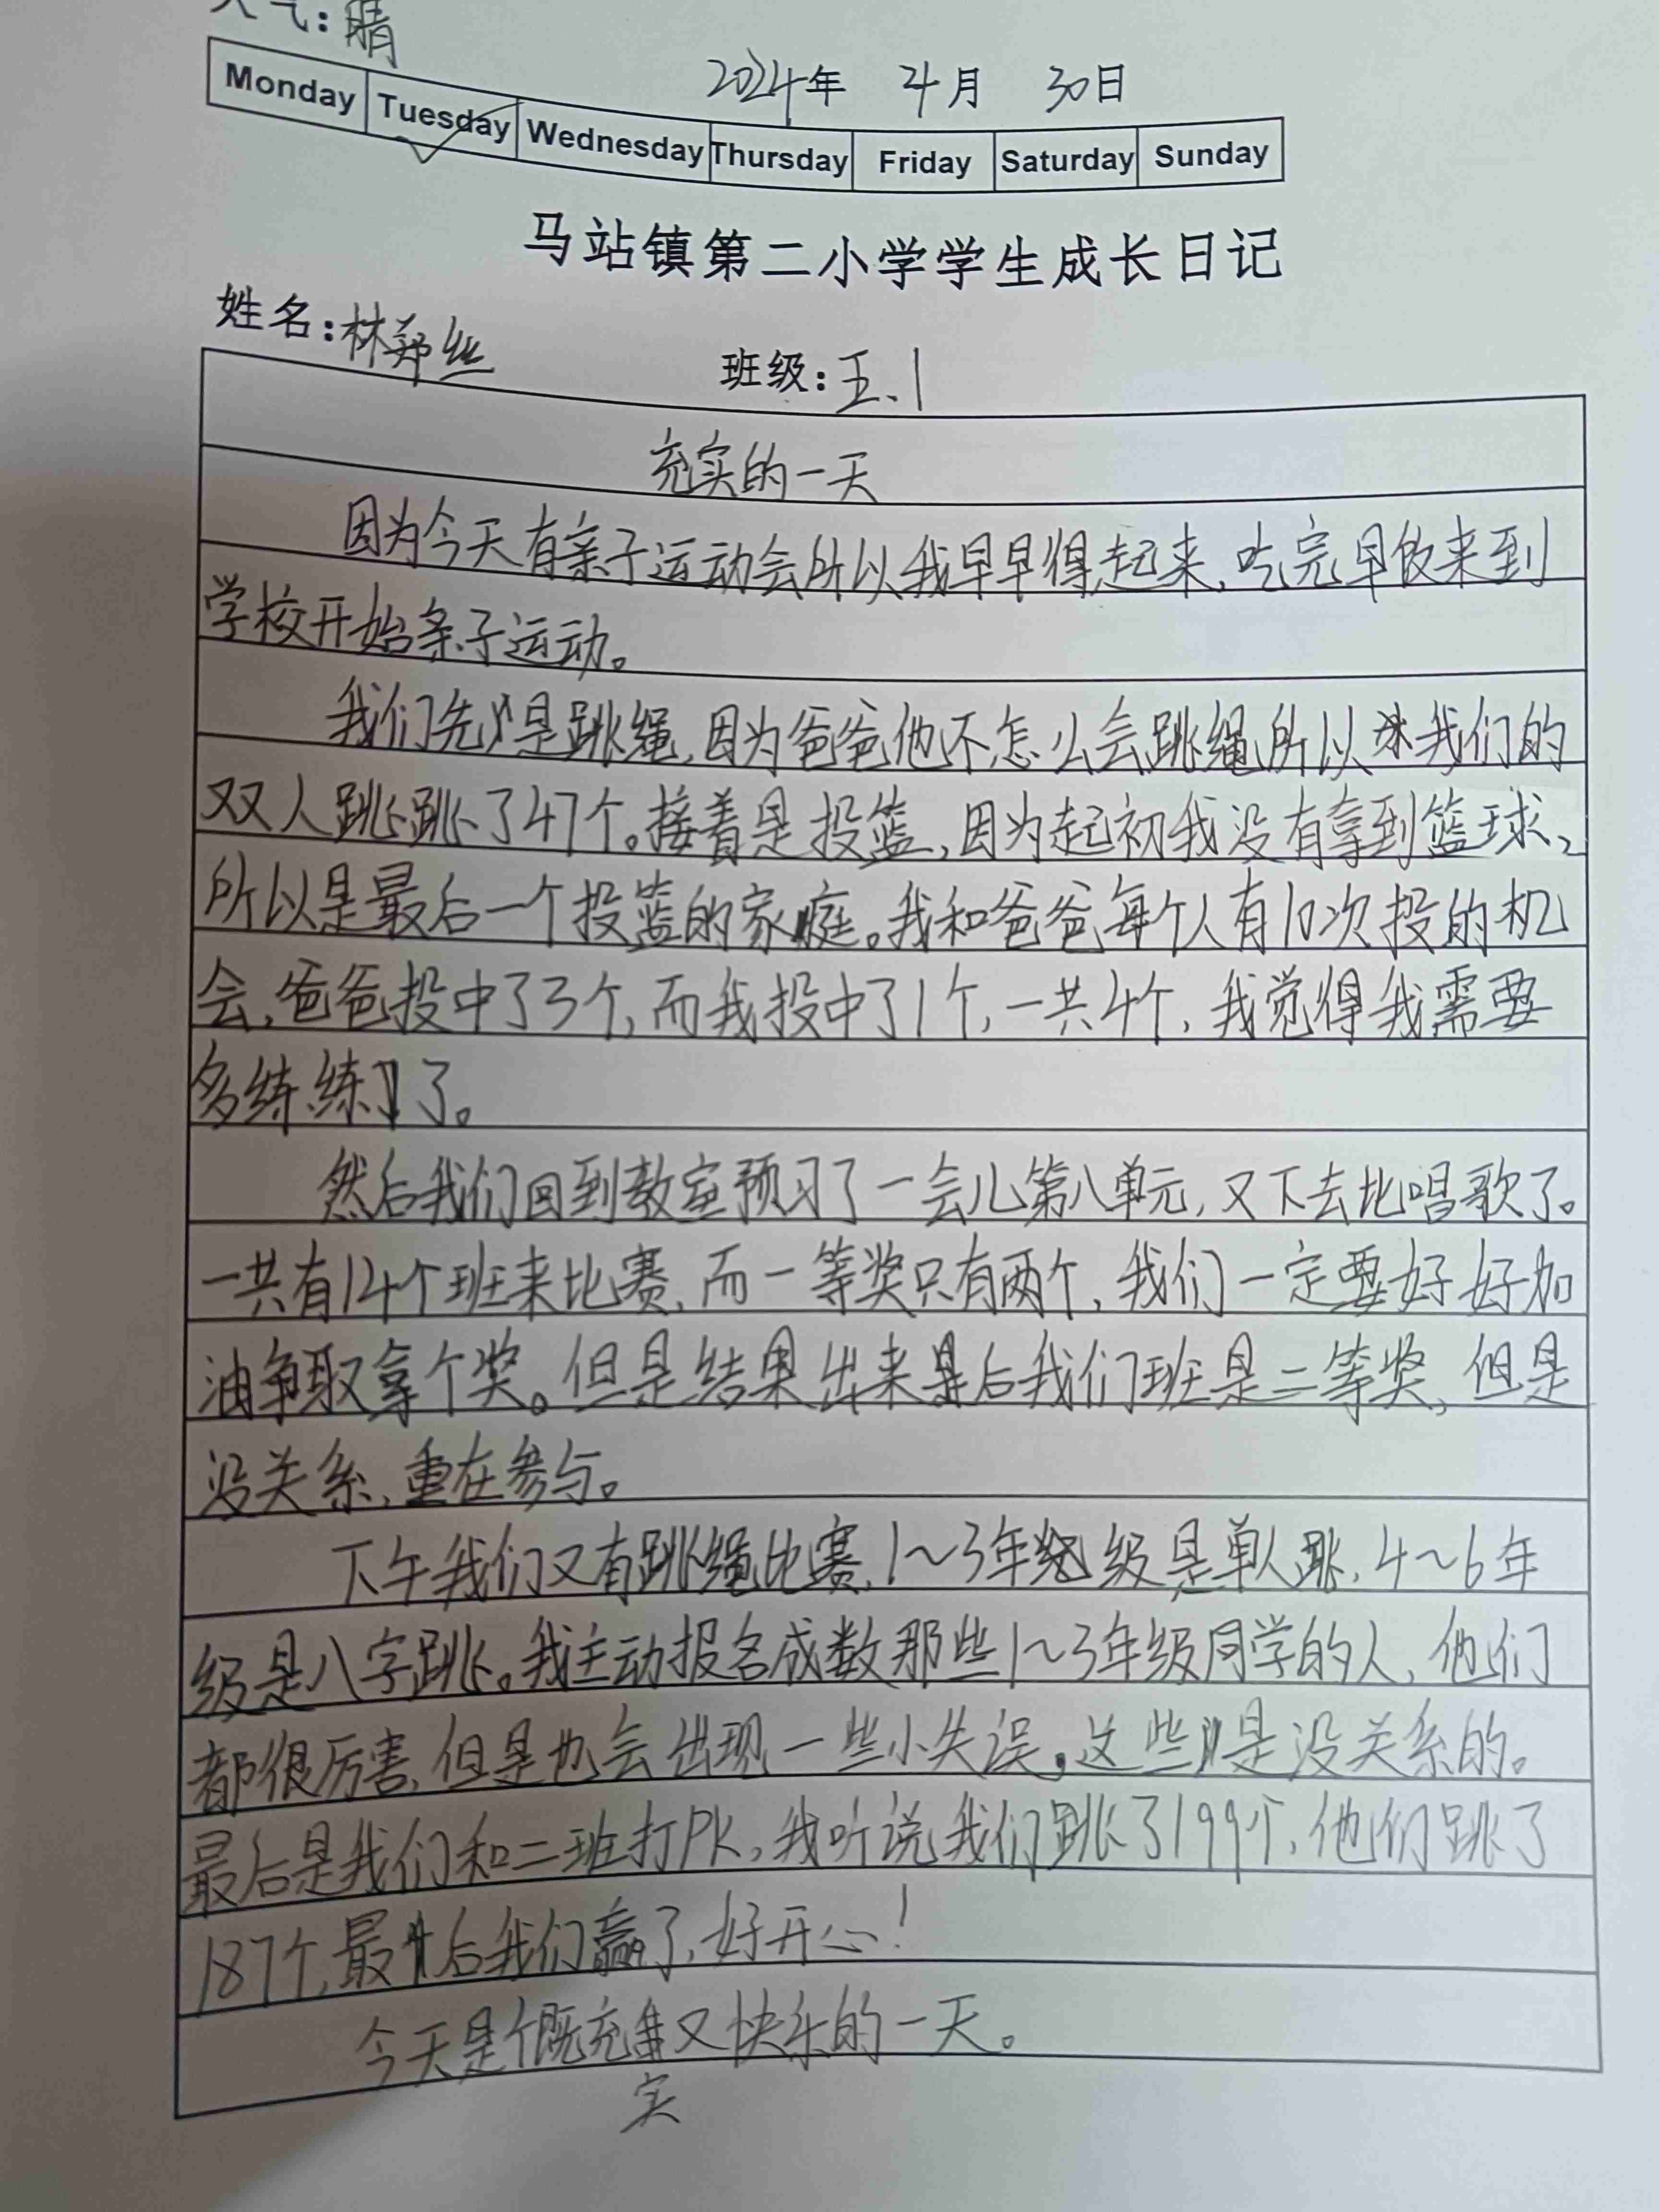 天气:晴
2024年 4月 30日
Monday Tuesday Wednesday Thursday Friday Saturday Sunday
马站镇第二小学学生成长日记
姓名:林郑丝 班级:五.1
充实的一天
因为今天有亲子运动会所以我早早得起来,吃完早饭来到
学校开始亲子运动。
我们先是跳绳,因为爸爸他不怎么会跳绳所以我们的
双人跳跳了47个。接着是投篮,因为起初我没有拿到篮球,
所以是最后一个投篮的家庭。我和爸爸每个人有10次投的机
会,爸爸投中了3个,而我投中了1个,一共4个,我觉得我需要
多练练习了。
然后我们回到教室预习了一会儿第八单元,又下去比唱歌了。
一共有14个班来比赛,而一等奖只有两个,我们一定要好好加
油争取拿个奖。但是结果出来最后我们班是二等奖,但是
没关系,重在参与。
下午我们又有跳绳比赛,1～3年级是单人跳,4～6年
级是八字跳。我主动报名成数那些1～3年级同学的人,他们
都很厉害,但是也会出现一些小失误,这些是没关系的。
最后是我们和二班打PK,我听说我们跳了199个,他们跳了
187个,最后我们赢了,好开心!
今天是个既充实又快乐的一天。